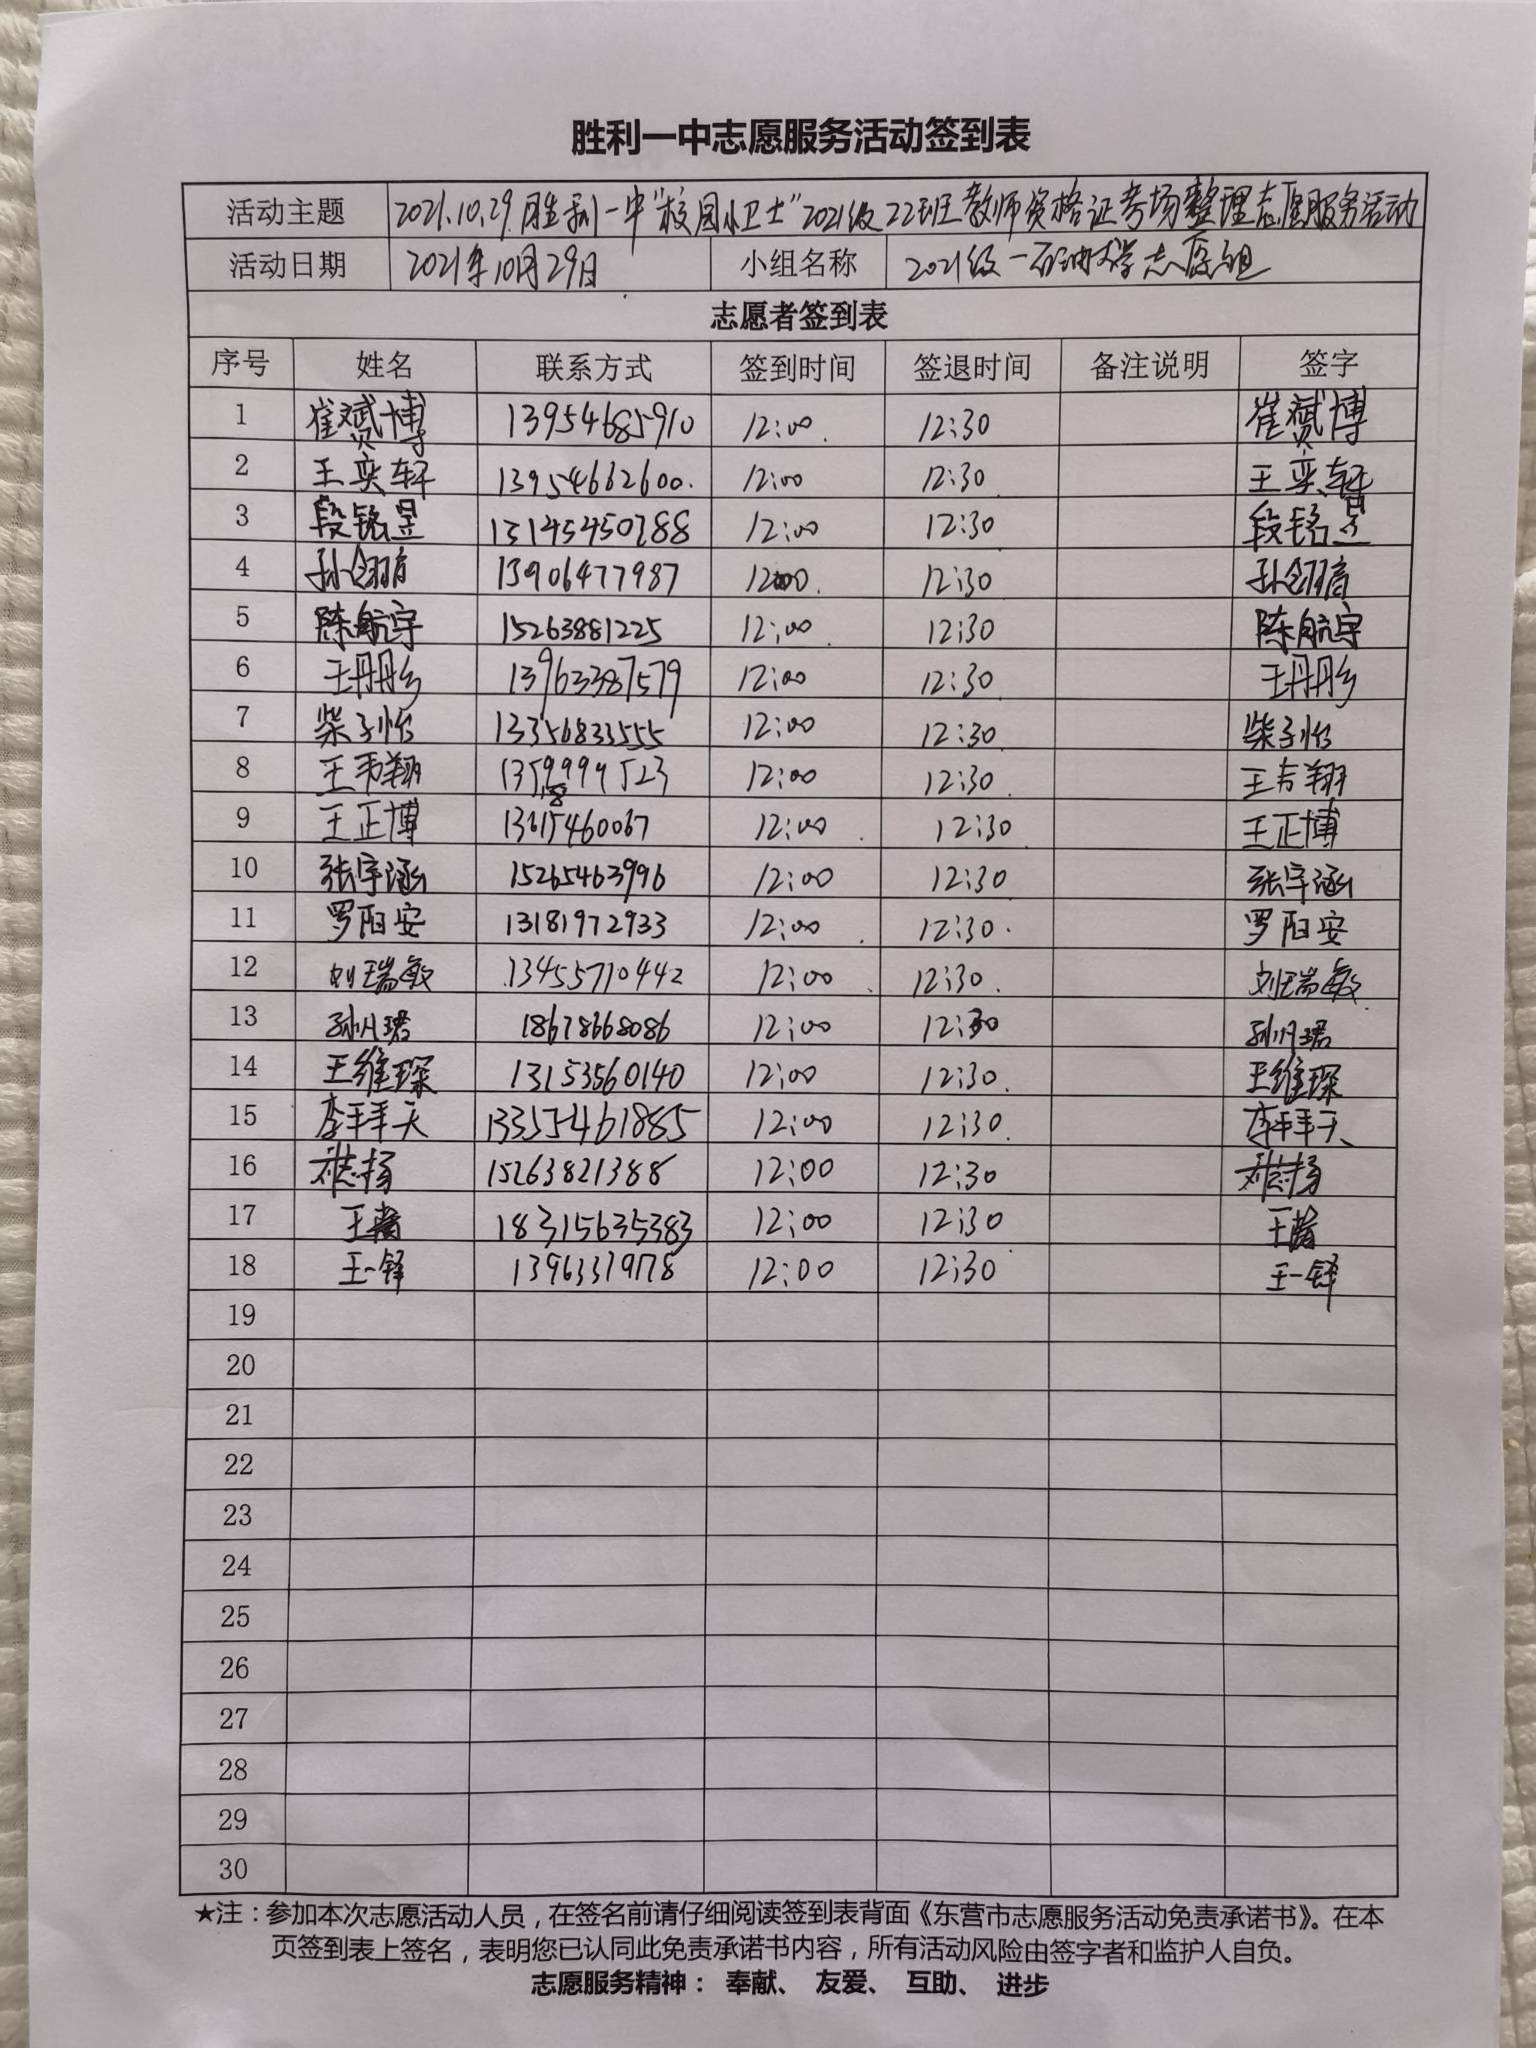 胜利一中志愿服务活动签到表
活动主题 2021.10.29.胜利一中"校园小卫士"2021级22班教师资格证考场整理志愿服务活动
活动日期 2021年10月29日 小组名称 2021级一石油大学志愿组
志愿者签到表
序号 姓名 联系方式 签到时间 签退时间 备注说明 签字
1 崔赟博 13954685910 12:00 12:30 崔赟博
2 王奕轩 13954662600 12:00 12:30 王奕轩
3 段铭昱 12:00 12:30 段铭昱
4 13906477987 12:00 12:30
5 陈航宇 15263881225 12:00 12:30 陈航宇
6 王丹丹 13963387579 12:00 12:30 王丹丹
7 柴子怡 13356833555 12:00 12:30 柴子怡
8 12:00 12:30
9 王正博 12:00 12:30 王正博
10 张宇涵 15265463996 12:00 12:30 张宇涵
11 罗阳安 13181972933 12:00 12:30 罗阳安
12 刘瑞敏 13455710442 12:00 12:30 刘瑞敏
13 孙凡珺 18678668086 12:00 12:30 孙凡珺
14 王维琛 13153560140 12:00 12:30 王维琛
15 13355461885 12:00 12:30
16 15263821388 12:00 12:30
17 18315635383 12:00 12:30
18 王一铎 12:00 12:30 王一铎
19
20
21
22
23
24
25
26
27
28
29
30
★注：参加本次志愿活动人员，在签名前请仔细阅读签到表背面《东营市志愿服务活动免责承诺书》。在本
页签到表上签名，表明您已认同此免责承诺书内容，所有活动风险由签字者和监护人自负。
志愿服务精神： 奉献、 友爱、 互助、 进步